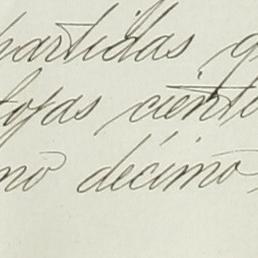 partidas q
fojas cient
no décimo,